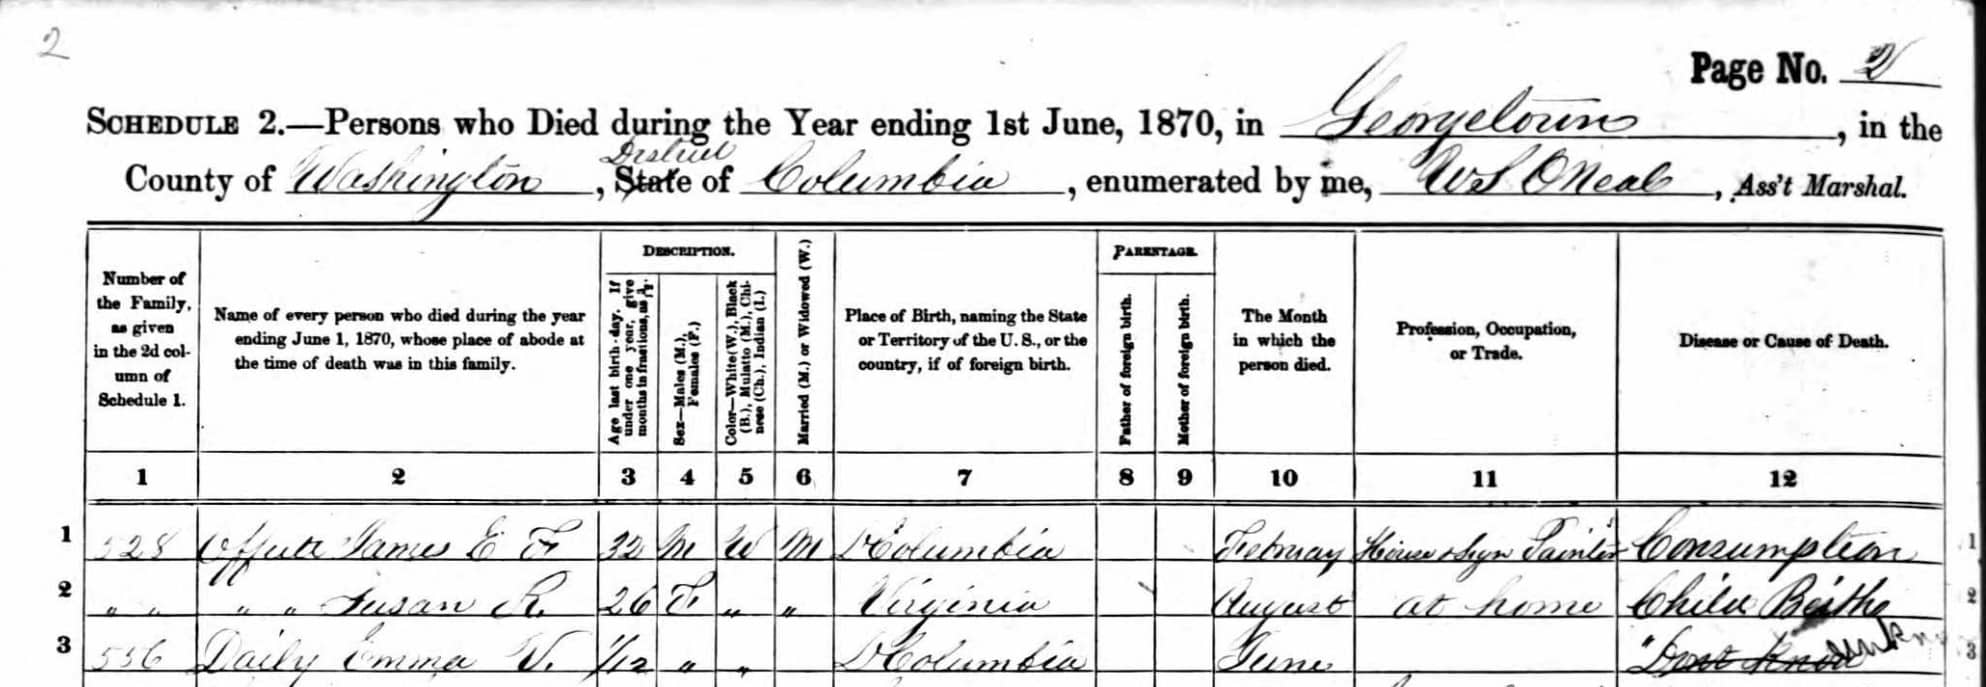 2
Page No. 2
SCHEDULE 2.—Persons who Died during the Year ending 1st June, 1870, in Georgetown, in the
District
County of Washington, State of Columbia, enumerated by me, W S ONeal, Ass't Marshal.
Number of the Family, as given in the 2d column of Schedule 1.
Name of every person who died during the year ending June 1, 1870, whose place of abode at the time of death was in this family.
DESCRIPTION.
Age last birth-day. If under one year, give months in fractions, as
Sex—Males (M.), Females (F.)
Color—White (W.), Black (B.), Mulatto (M.), Chinese (Ch.), Indian (I.)
Married (M.) or Widowed (W.)
Place of Birth, naming the State or Territory of the U. S., or the country, if of foreign birth.
PARENTAGE.
Father of foreign birth.
Mother of foreign birth.
The Month in which the person died.
Profession, Occupation, or Trade.
Disease or Cause of Death.
1 2 3 4 5 6 7 8 9 10 11 12
1 528 Offutt James E F 32 M W M D Columbia Febuary House & Sign Painter Consumption 1
2 " " " " Susan R. 26 F " " Virginia August at home Child Birth 2
3 556 Daily Emma V. 1/12 " " D Columbia June "Dont Know 3